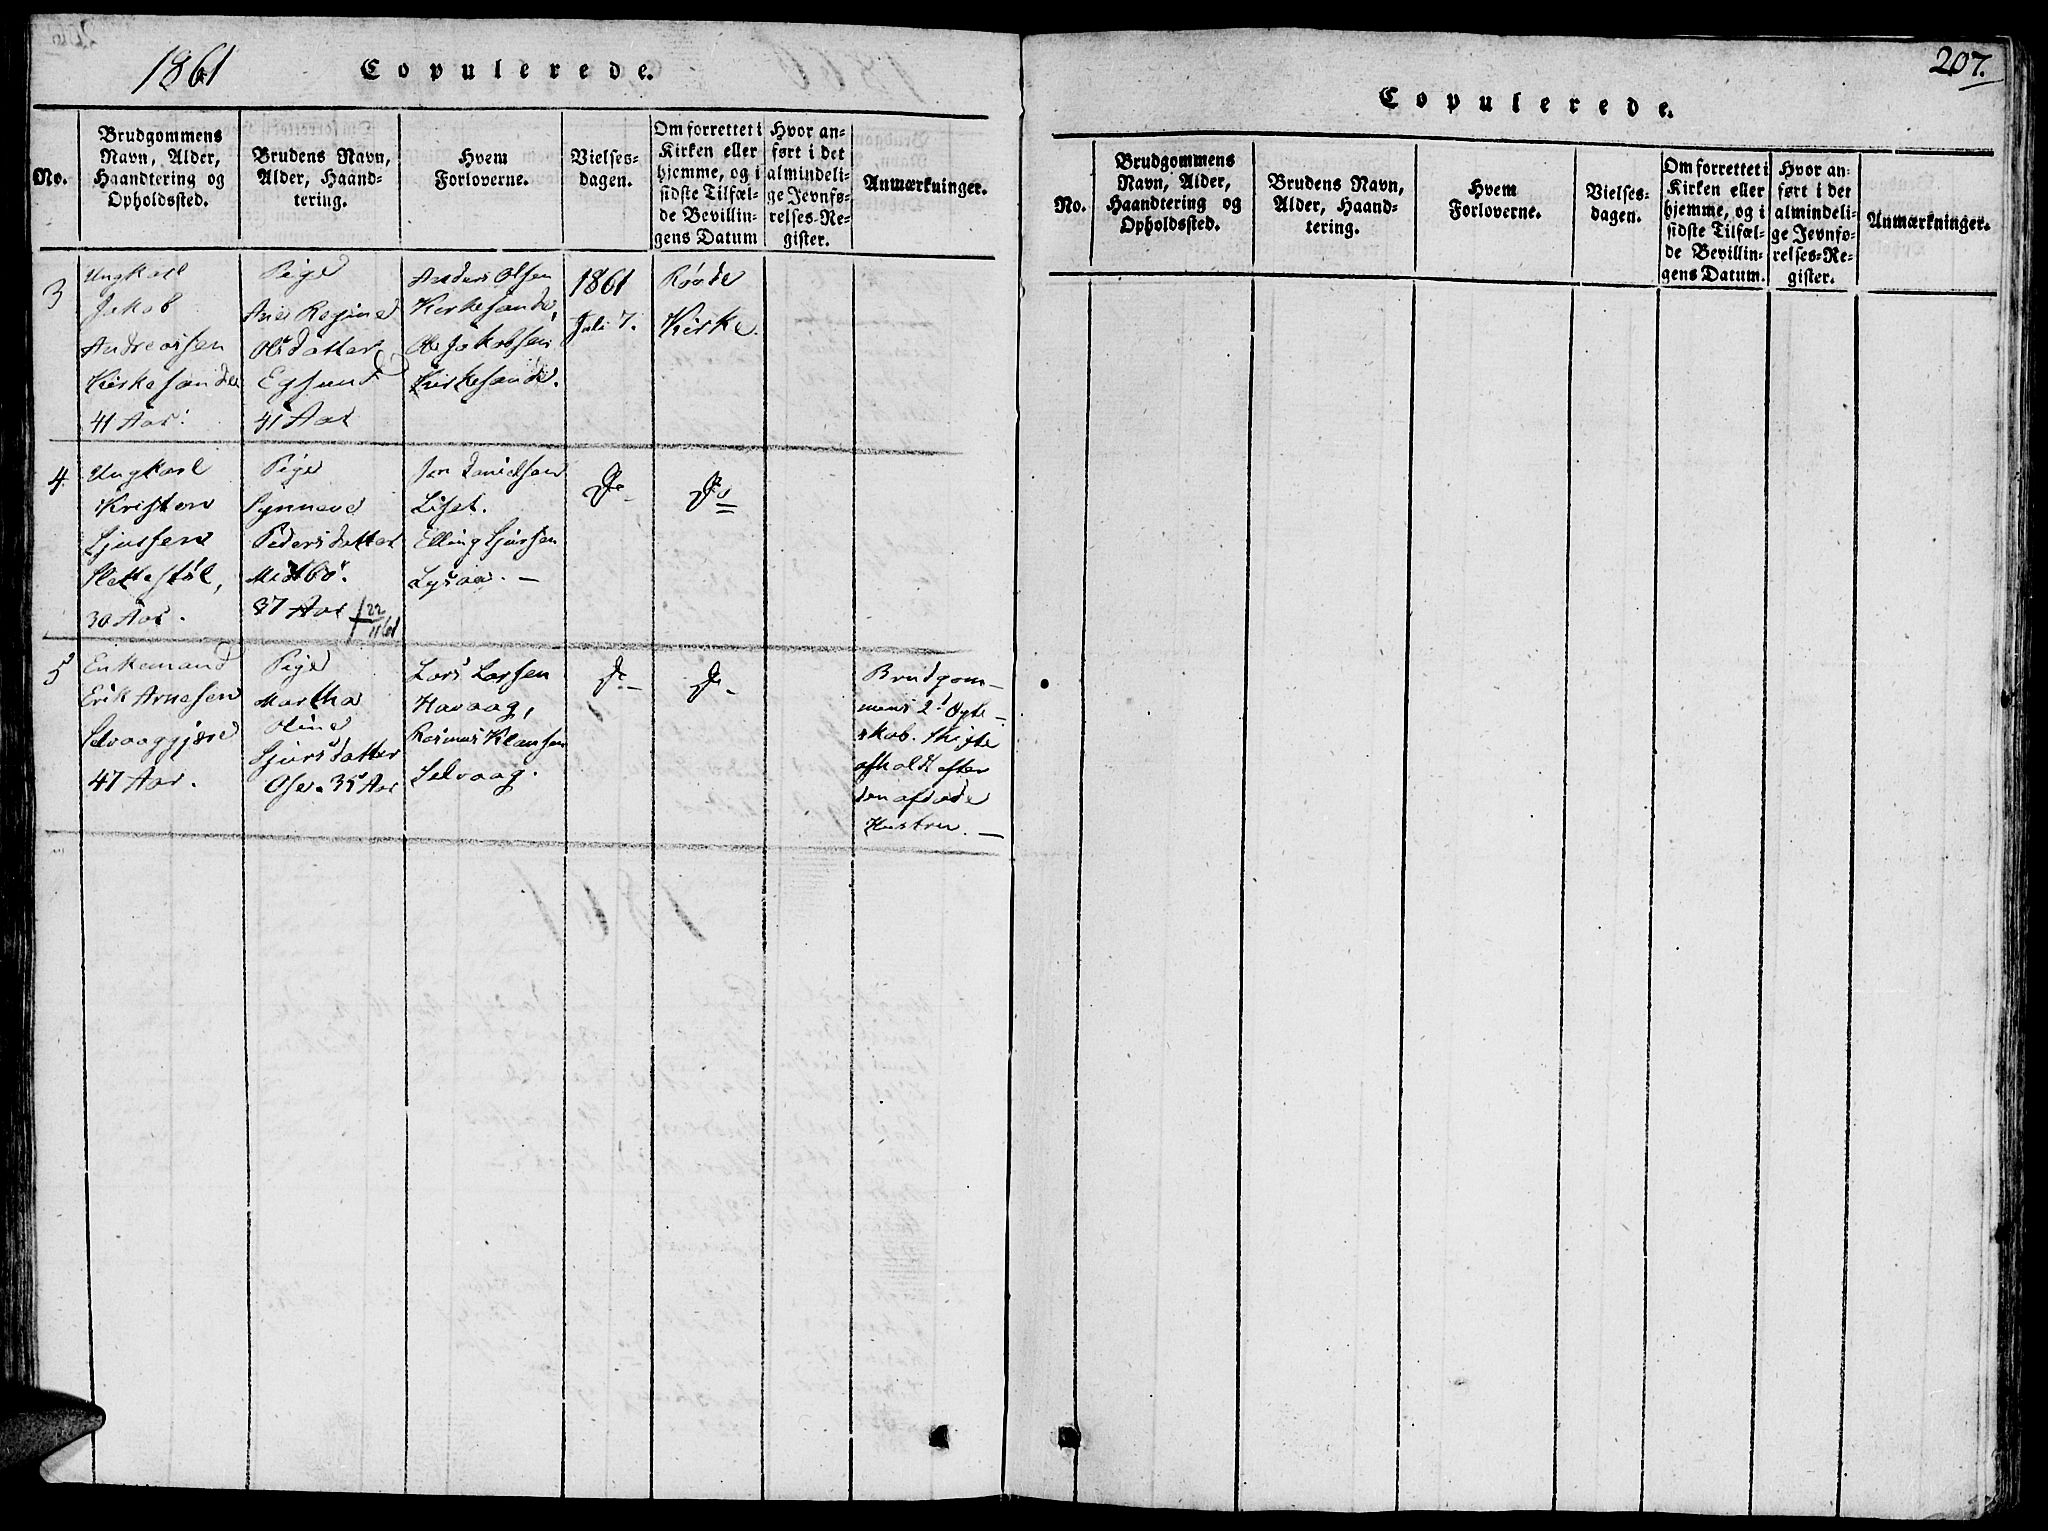 1861
Copulerede.
No.
Brudgommens
Navn, Alder,
Haandtering og
Opholdssted.
Brudens Navn,
Alder, Haand-
tering.
Hvem
Forloverne.
Vielses-
dagen.
Om forrettet i
Kirken eller
hjemme, og i
sidste Tilfæl-
de Bevillin-
gens Datum
Hvor an-
ført i det
almindeli-
ge Jevnfø-
relses-Re-
gister.
Anmærkninger.
3
Ungkarl
Jakob
Andreassen
Kirkesande
41 Aar.
Pige
Ane Regine
Olsdatter
Egsund
41 Aar
Anders Olsen
Kirkesande,
Ole Jakobsen
Kirkesande.
1861
Juli 7.
Roöde
Kirke.
4
Ungkarl
Kristen
Sjursen
Slettestøl,
30 Aar.
Pige
Synneve
Pedersdatter
Midtbö.
37 Aar
22
11 61
Jon Danielsen
Liset.
Elling Sjursen
Lysaa. —
Do
Do
5
Enkemand
Erik Arnesen
Selvaaggjære
47 Aar.
Pige
Martha
Oline
Sjursdatter
Ose. 35 Aar
Lars Larsen
Havaag,
Rasmus Klausen
Selvaag.
Do
Do
Brudgom-
mens 2d Ægte-
skab. Skifte
afholdt efter
den afdøde
Hustru. —
207.
Copulerede.
No.
Brudgommens
Navn, Alder,
Haandtering og
Opholdssted.
Brudens Navn,
Alder, Haand-
tering.
Hvem
Forloverne.
Vielses-
dagen.
Om forrettet i
Kirken eller
hjemme, og i
sidste Tilfæl-
de Bevillin-
gens Datum.
Hvor an-
ført i det
almindeli-
ge Jevnfø-
relses-Re-
gister.
Anmærkninger.